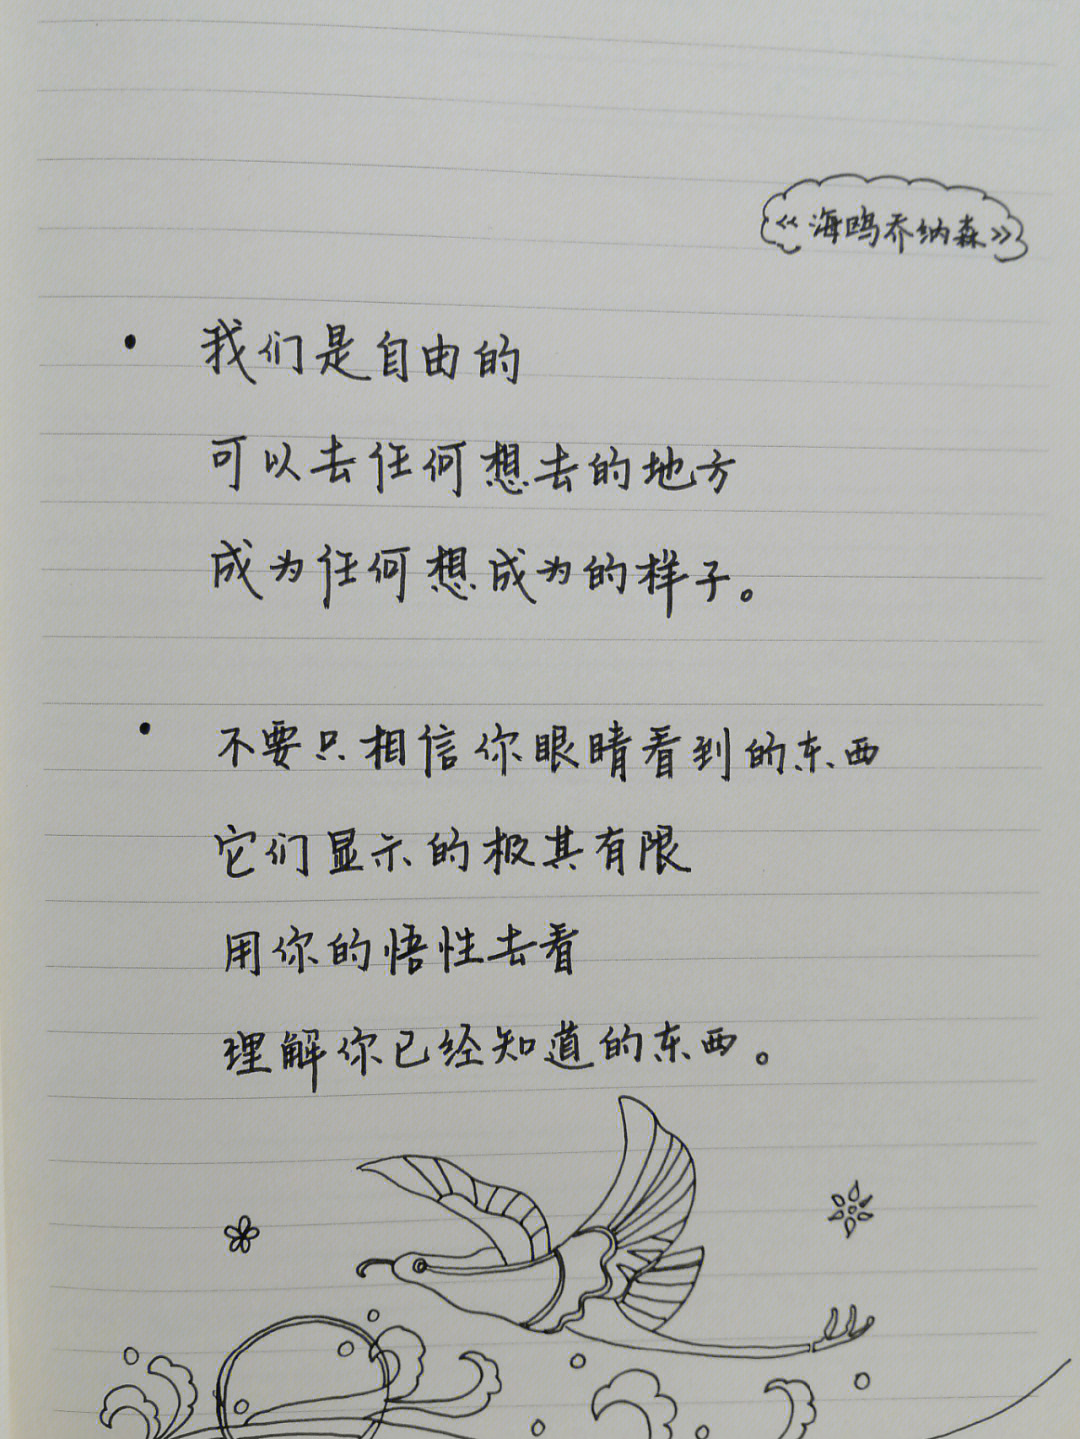 《海鸥乔纳森》
• 我们是自由的
可以去任何想去的地方
成为任何想成为的样子。
• 不要只相信你眼睛看到的东西
它们显示的极其有限
用你的悟性去看
理解你已经知道的东西。